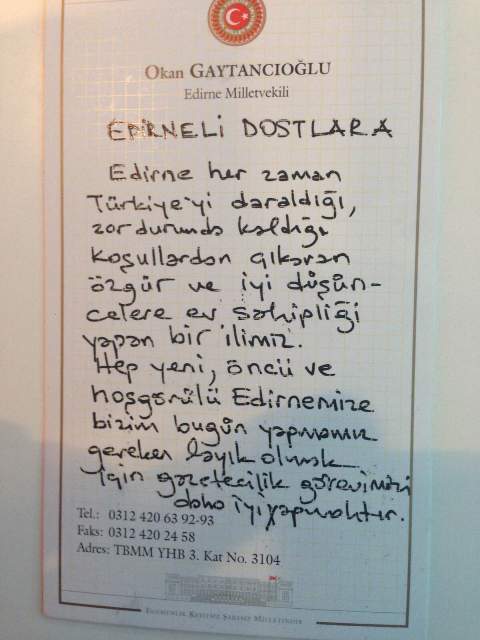 Okan GAYTANCIOĞLU
Edirne Milletvekili
EDİRNELİ DOSTLARA
Edirne her zaman
Türkiye'yi daraldığı,
zor durumda kaldığı
koşullardan çıkaran
özgür ve iyi düşün-
celere ev sahipliği
yapan bir ilimiz.
Hep yeni, öncü ve
hoşgörülü Edirnemize
bizim bugün yapmamız
gereken layık olmak
için gazetecilik görevimizi
daha iyi yapmaktır.
Tel.: 0312 420 63 92-93
Faks: 0312 420 24 58
Adres: TBMM YHB 3. Kat No. 3104
EGEMENLİK KAYITSIZ ŞARTSIZ MİLLETİNDİR